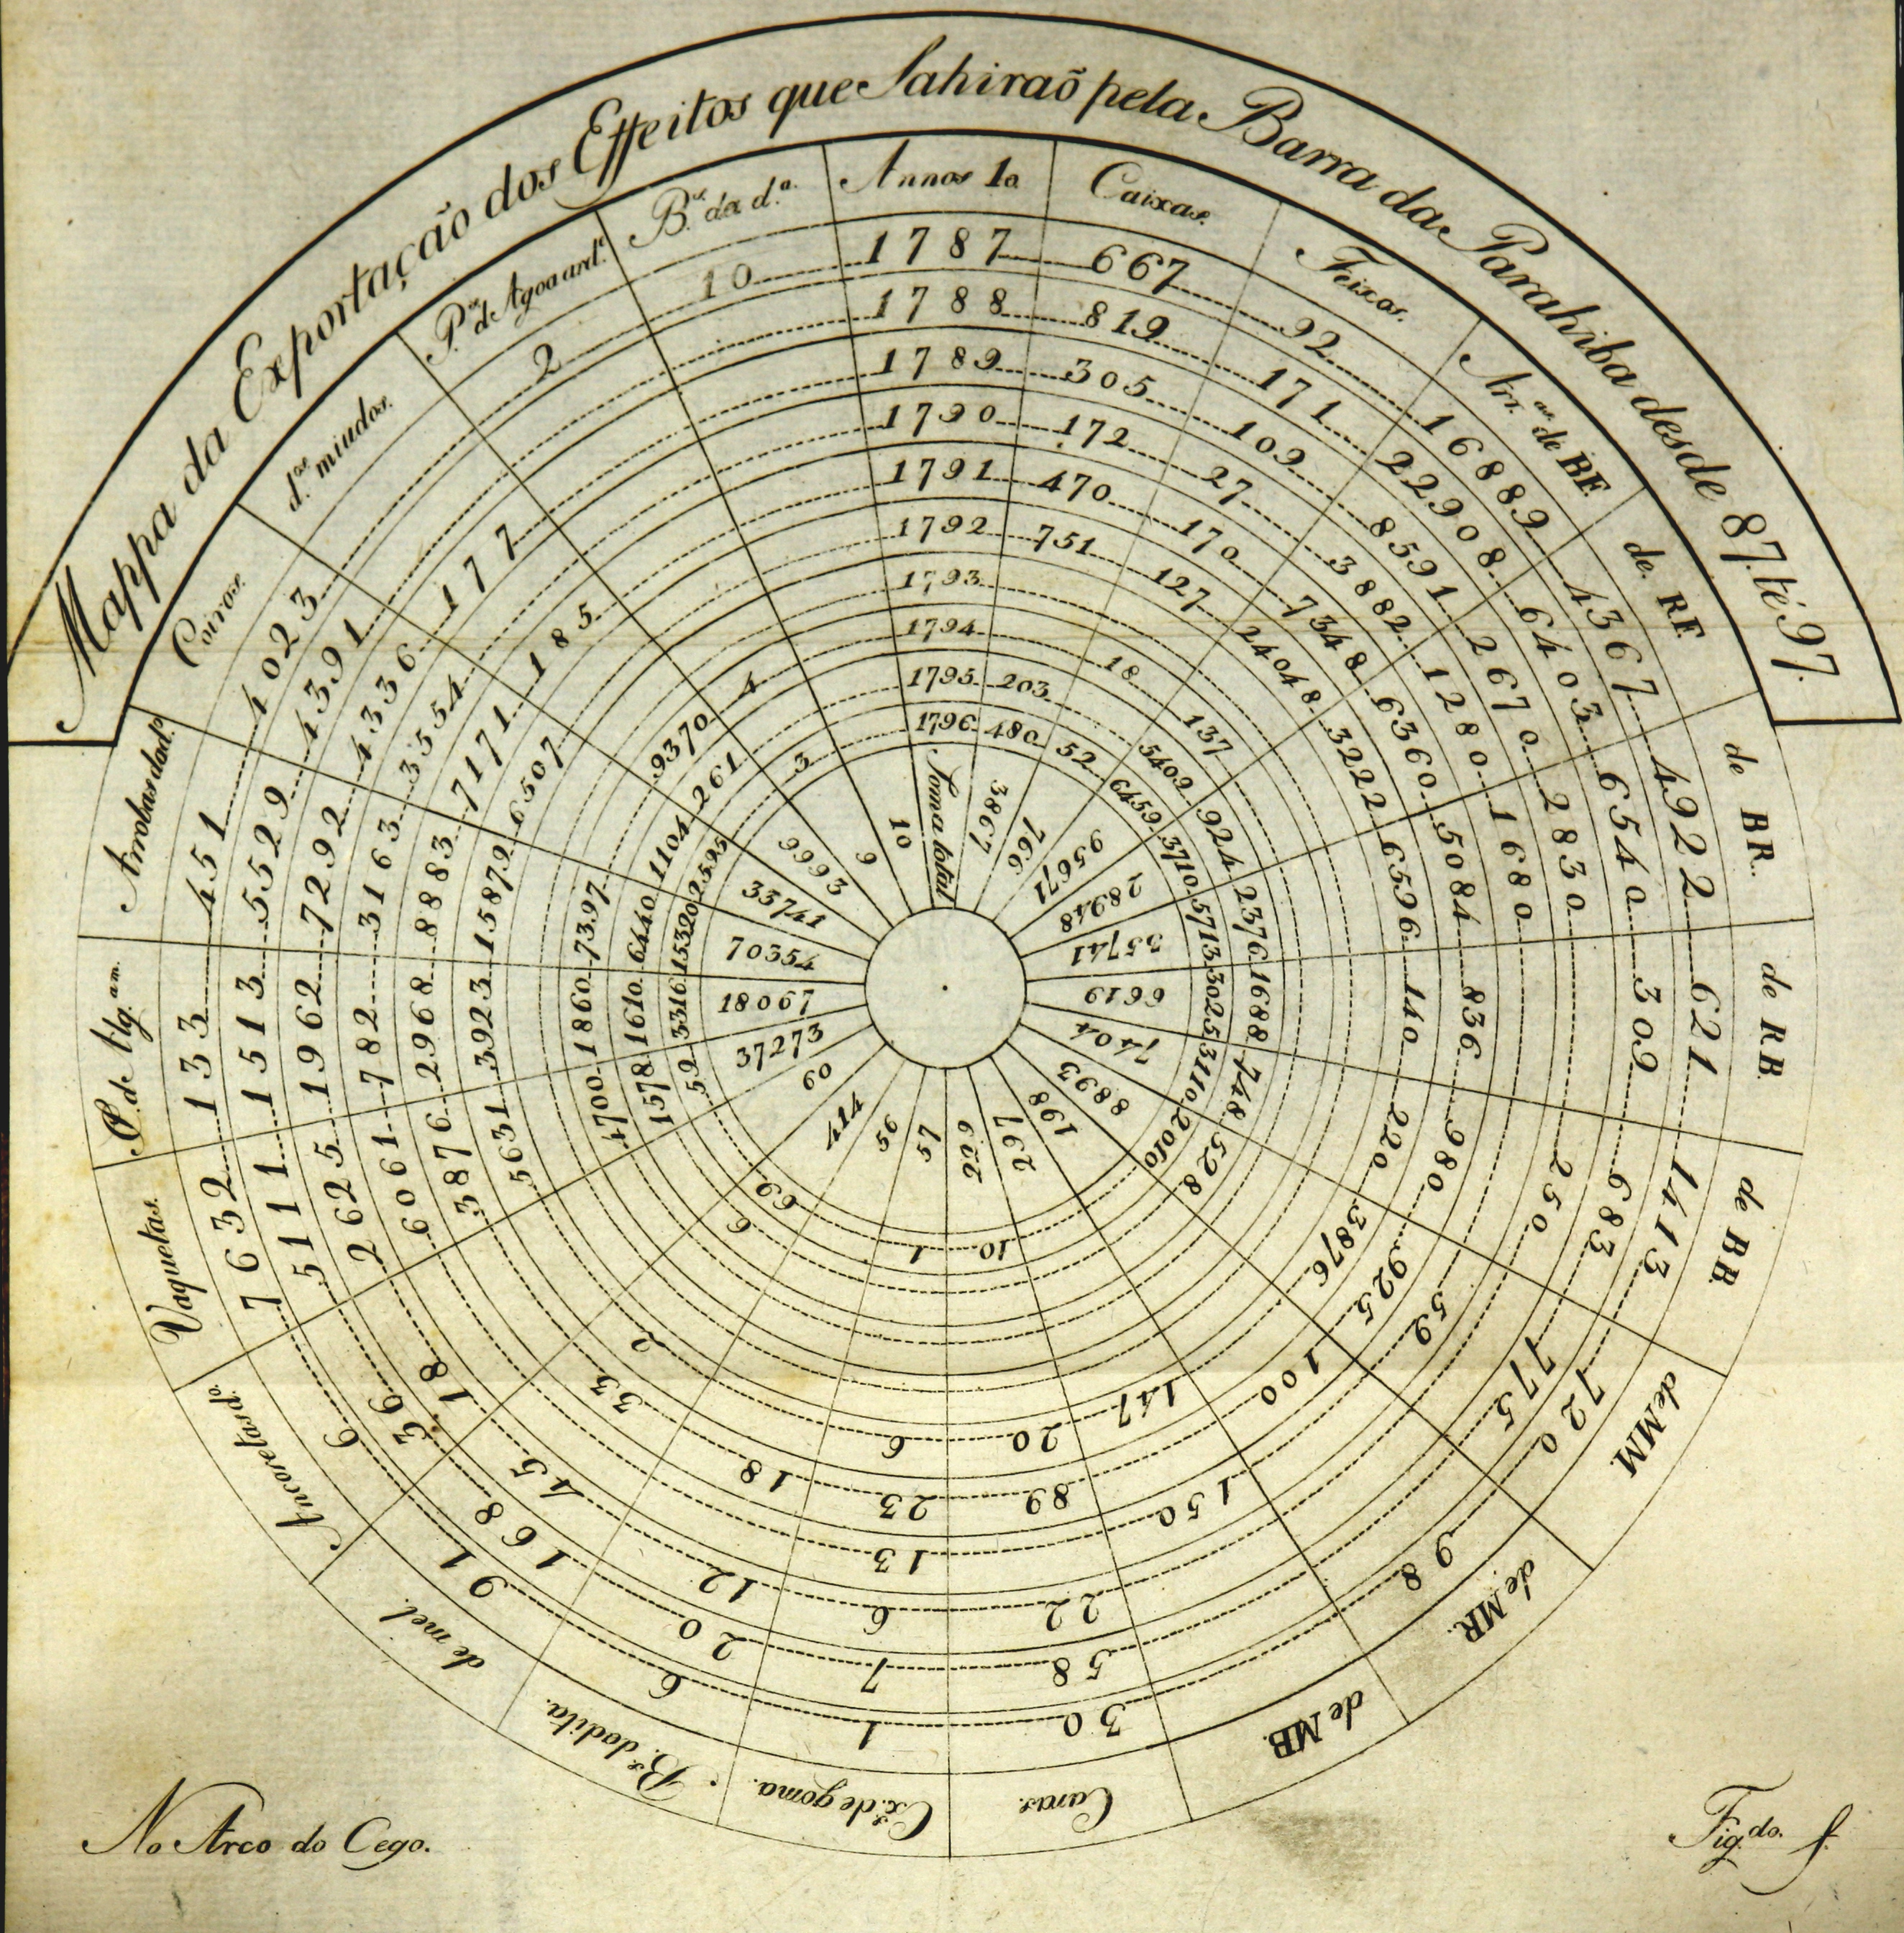 Mappa da Exportação dos Effeitos que Sahiraõ pela Barra da Parahiba desde 87. té 97.
Annos 1o. Caixas. Feixos. Arr.as de BF. de. RF. de BR. de RB. de BB. de MM de MR. de MB. Caras. Cx.s de goma. B.s do dito. de mel. Ancoretas do d.o Vaquetas. @. de Alg.am Arrobas da d.o Coiros. d.os miudos. P.as d'Agoa ard.e B.s da d.a
1787 667 92 16889 4367 4922 621 1413 720 98 30 1 6 91 6 7632 133 451 4023 2 10
1788 819 171 22908 6403 6540 309 683 775 58 7 20 168 36 5111 1513 5529 4391
1789 305 109 8591 2670 2830 250 22 6 12 45 18 2625 1962 7292 4336 177
1790 172 27 3882 1280 1680 13 6061 782 3163 3554
1791 470 170 7348 6360 5084 836 980 925 59 150 89 23 18 33 3876 2968 8883 7171 185
1792 751 127 24048 3222 6596 140 220 3876 100 147 20 6 2 5631 3923 15879 6507
1793
1794 18 137 4700 1860 7397 9370 4
1795 203 5402 924 2376 1688 748 528 6 1578 1610 6440 1104 261
1796 480 52 6459 3710 5713 3025 3110 2010 10 1 69 59 3316 15320 2595 3
Soma total 3867 766 95671 28948 35741 6619 7404 8893 198 297 229 57 56 414 60 37273 18067 70354 33741 9993 9 10
No Arco do Cego.
Fig.do f.